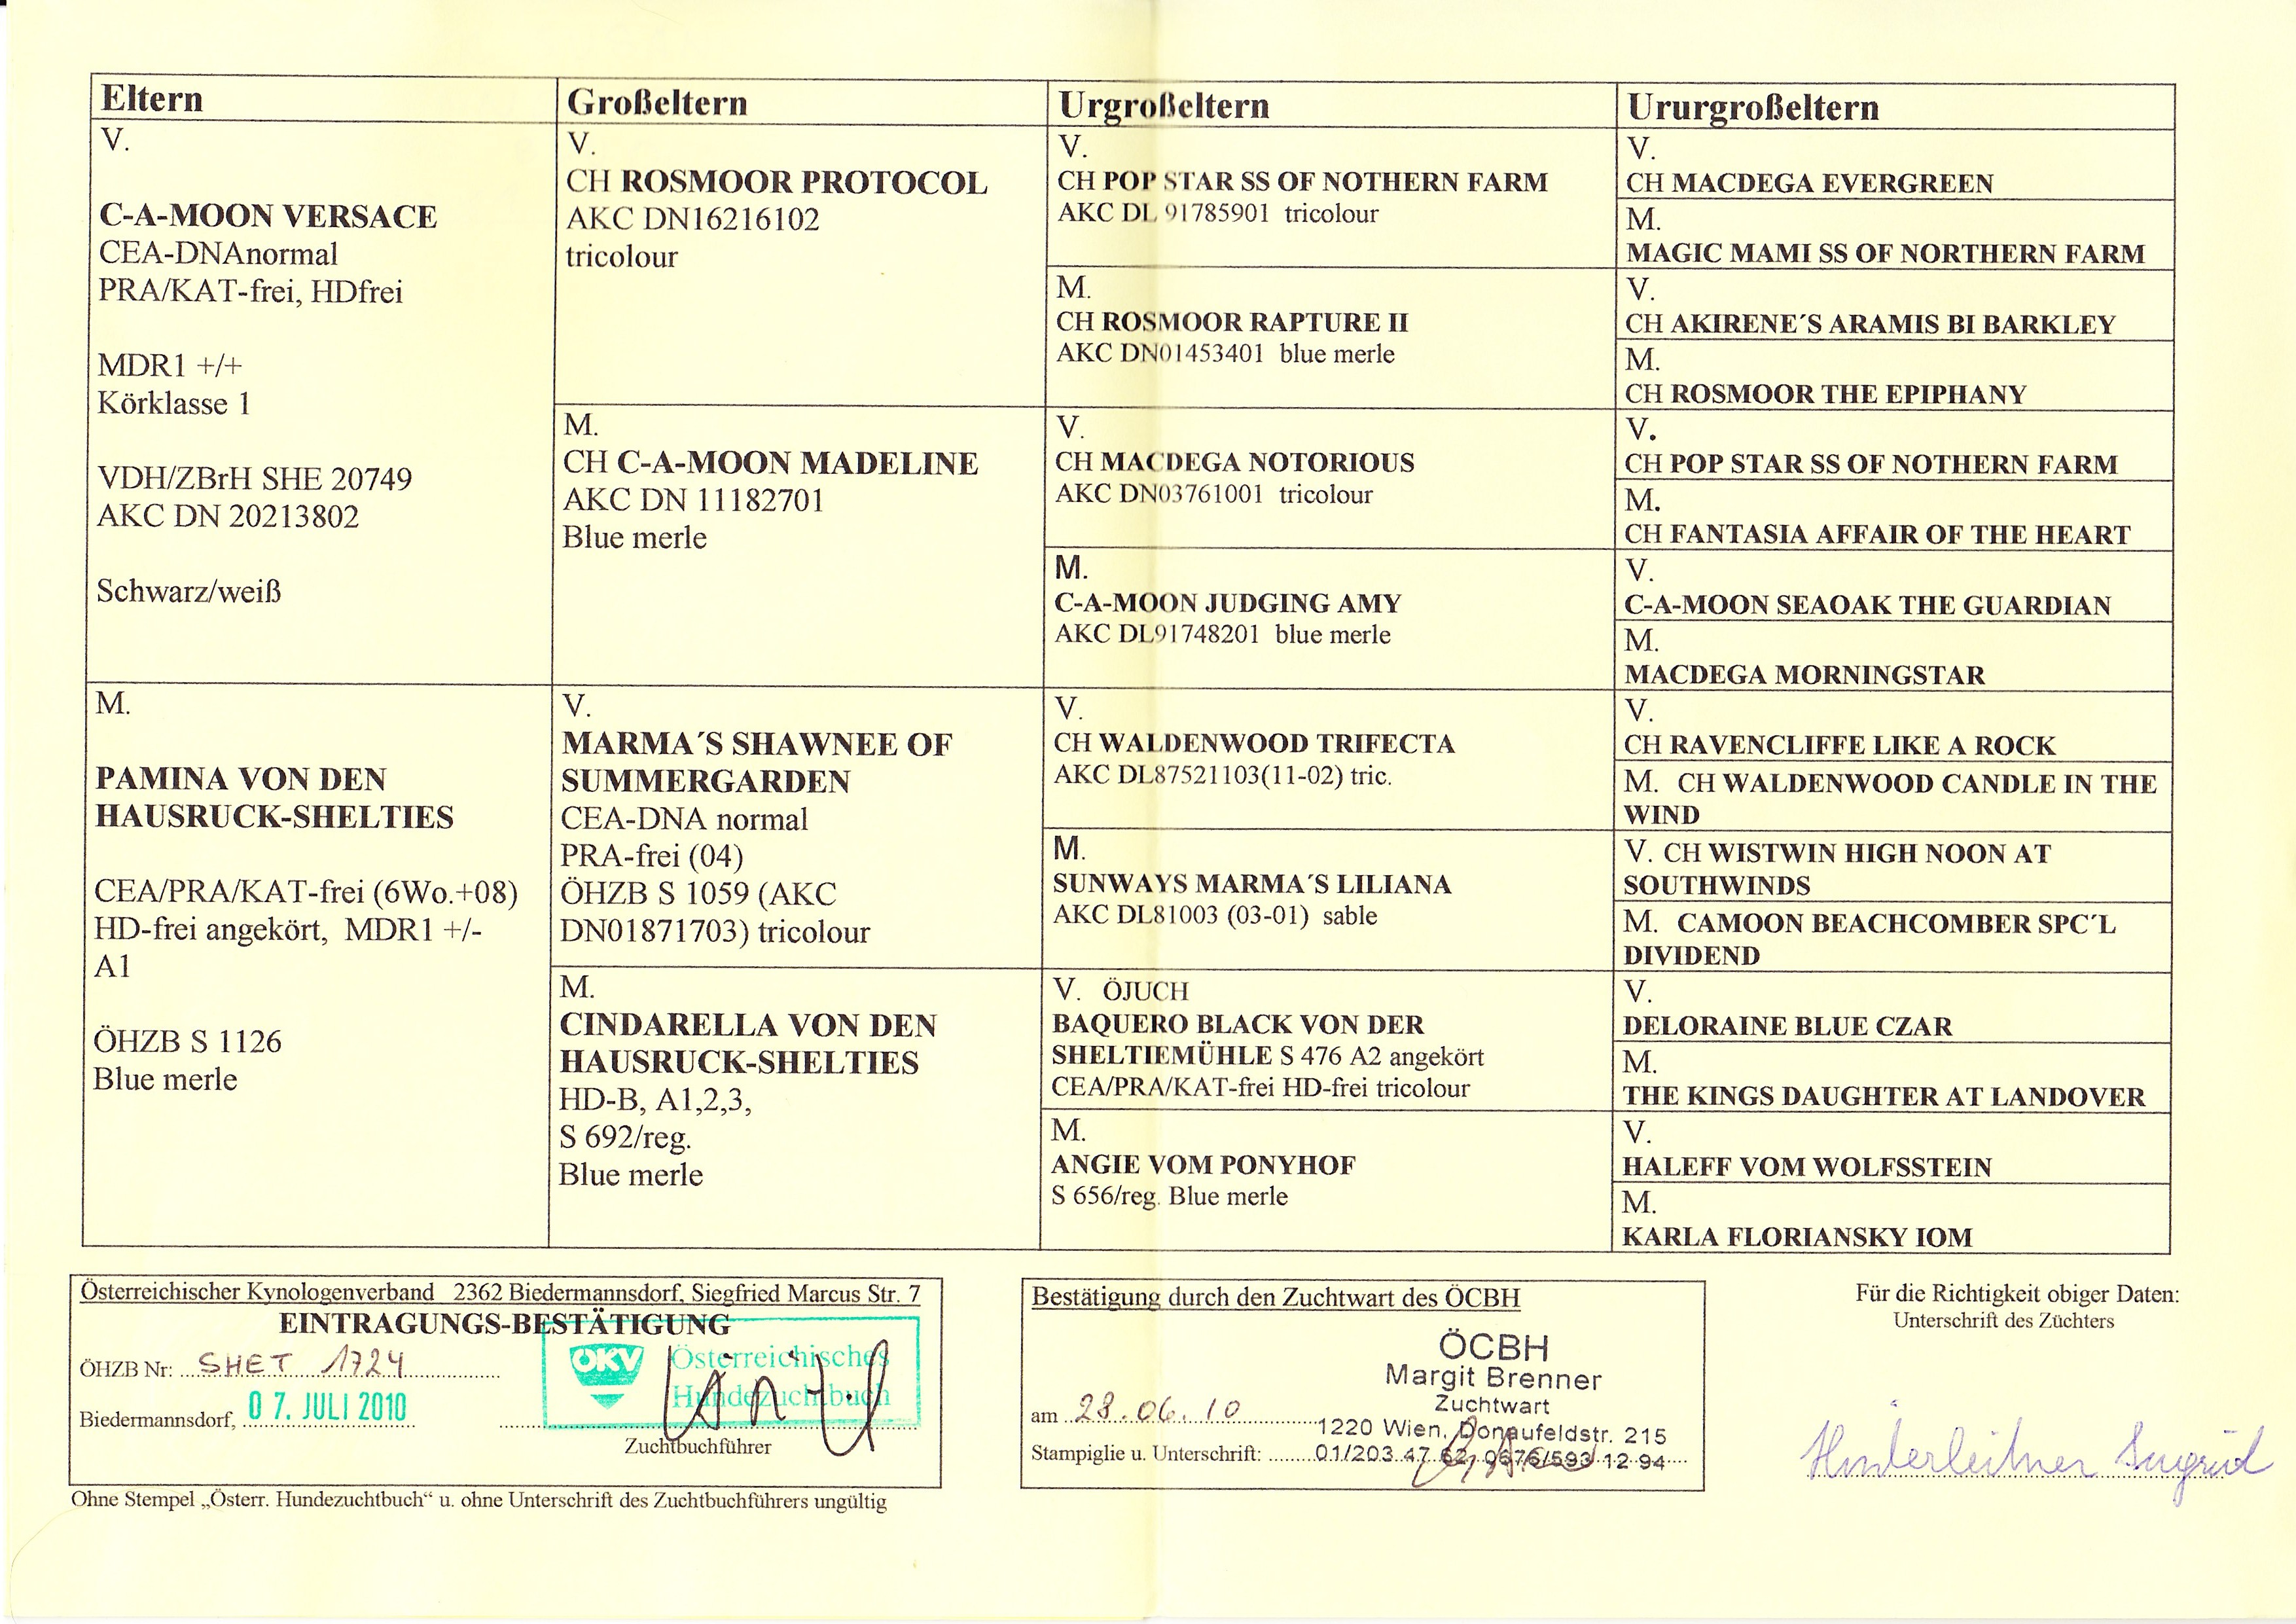 Eltern
V.
C-A-MOON VERSACE
CEA-DNAnormal
PRA/KAT-frei, HDfrei
MDR1 +/+
Körklasse 1
VDH/ZBrH SHE 20749
AKC DN 20213802
Schwarz/weiß
M.
PAMINA VON DEN
HAUSRUCK-SHELTIES
CEA/PRA/KAT-frei (6Wo.+08)
HD-frei angekört, MDR1 +/-
A1
ÖHZB S 1126
Blue merle
Großeltern
V.
CH ROSMOOR PROTOCOL
AKC DN16216102
tricolour
M.
CH C-A-MOON MADELINE
AKC DN 11182701
Blue merle
V.
MARMA´S SHAWNEE OF
SUMMERGARDEN
CEA-DNA normal
PRA-frei (04)
ÖHZB S 1059 (AKC
DN01871703) tricolour
M.
CINDARELLA VON DEN
HAUSRUCK-SHELTIES
HD-B, A1,2,3,
S 692/reg.
Blue merle
Urgroßeltern
V.
CH POP STAR SS OF NOTHERN FARM
AKC DL 91785901 tricolour
M.
CH ROSMOOR RAPTURE II
AKC DN01453401 blue merle
V.
CH MACDEGA NOTORIOUS
AKC DN03761001 tricolour
M.
C-A-MOON JUDGING AMY
AKC DL91748201 blue merle
V.
CH WALDENWOOD TRIFECTA
AKC DL87521103(11-02) tric.
M.
SUNWAYS MARMA´S LILIANA
AKC DL81003 (03-01) sable
V. ÖJUCH
BAQUERO BLACK VON DER
SHELTIEMÜHLE S 476 A2 angekört
CEA/PRA/KAT-frei HD-frei tricolour
M.
ANGIE VOM PONYHOF
S 656/reg. Blue merle
Ururgroßeltern
V.
CH MACDEGA EVERGREEN
M.
MAGIC MAMI SS OF NORTHERN FARM
V.
CH AKIRENE´S ARAMIS BI BARKLEY
M.
CH ROSMOOR THE EPIPHANY
V.
CH POP STAR SS OF NOTHERN FARM
M.
CH FANTASIA AFFAIR OF THE HEART
V.
C-A-MOON SEAOAK THE GUARDIAN
M.
MACDEGA MORNINGSTAR
V.
CH RAVENCLIFFE LIKE A ROCK
M. CH WALDENWOOD CANDLE IN THE
WIND
V. CH WISTWIN HIGH NOON AT
SOUTHWINDS
M. CAMOON BEACHCOMBER SPC´L
DIVIDEND
V.
DELORAINE BLUE CZAR
M.
THE KINGS DAUGHTER AT LANDOVER
V.
HALEFF VOM WOLFSSTEIN
M.
KARLA FLORIANSKY IOM
Österreichischer Kynologenverband 2362 Biedermannsdorf, Siegfried Marcus Str. 7
EINTRAGUNGS-BESTÄTIGUNG
ÖHZB Nr: SHET 1724
ÖKV Österreichisches
Hundezuchtbuch
Biedermannsdorf, 07. JULI 2010
Zuchtbuchführer
Ohne Stempel „Österr. Hundezuchtbuch“ u. ohne Unterschrift des Zuchtbuchführers ungültig
Bestätigung durch den Zuchtwart des ÖCBH
ÖCBH
Margit Brenner
Zuchtwart
am 28.06.10
1220 Wien, Donaufeldstr. 215
Stampiglie u. Unterschrift: 01/203 47 62, 0676/593 12 94
Für die Richtigkeit obiger Daten:
Unterschrift des Züchters
Hinterleitner Ingrid